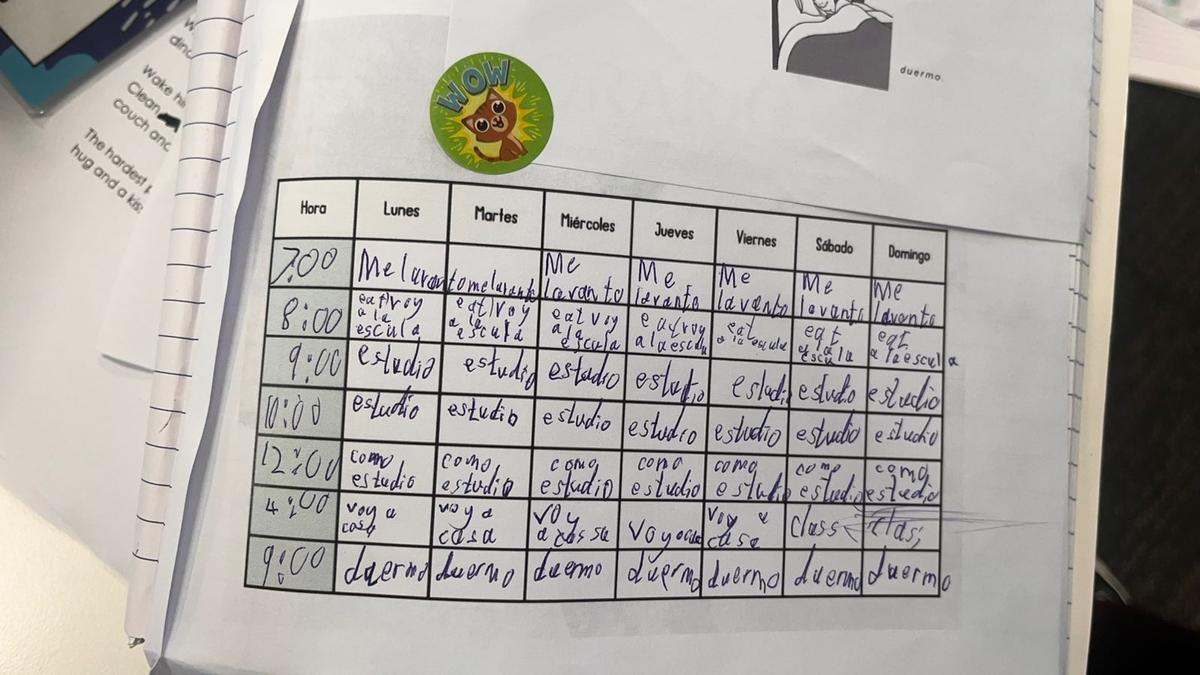 duermo.
WOW
Wake hi
Clean
couch and
The hardest
hug and a kis
Hora Lunes Martes Miércoles Jueves Viernes Sábado Domingo
7:00 Me lavanto me lavanto Me lavanto Me lavanto Me lavanto Me lavanto Me lavanto
8:00 eat/voy a la escula eat/voy a la escula eat voy a la escula eat voy a la escula eat a la escula eat a la escu eat a la escula
9:00 estudio estudio estudio estudio estudio estudio estudio
10:00 estudio estudio estudio estudio estudio estudio estudio
12:00 como estudio como estudio como estudio como estudio como estudio como estudio como estudio
4:00 voy a casa voy a casa voy a cassa voy a casa voy a casa class clas
9:00 duermo duermo duermo duermo duermo duermo duermo